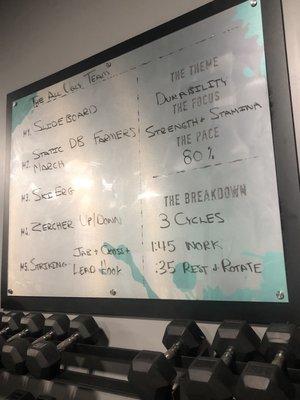 "The All Call Team"
M1. SLIDEBOARD
M2. STATIC DB FARMERS
MARCH
M3. SKI ERG
M4. ZERCHER UP/DOWN
M5. STRIKING JAB + CROSS +
LEAD HOOK
THE THEME
DURABILITY
THE FOCUS
STRENGTH + STAMINA
THE PACE
80%
THE BREAKDOWN
3 CYCLES
1:45 WORK
:35 REST + ROTATE